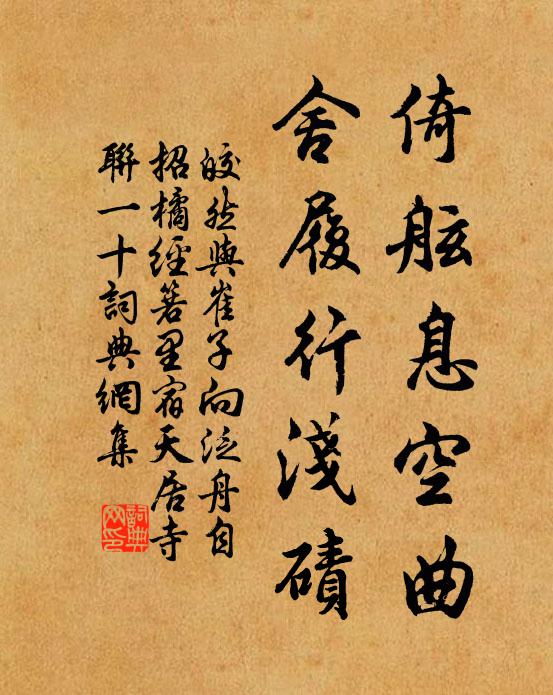 倚舷息空曲
舍履行淺磧
皎然與崔子向泛舟自
招橘經箬里宿天居寺
聯一十詞典網集
詞典网印